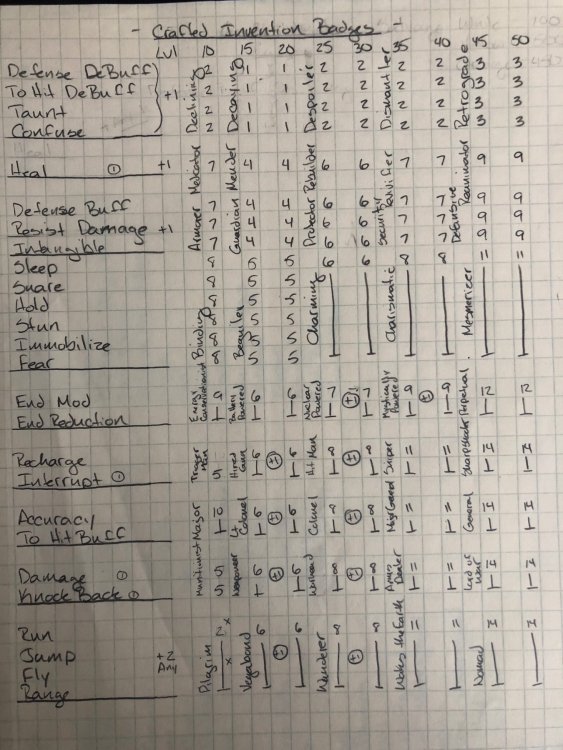 - Crafted Invention Badges -
Lvl 10 15 20 25 30 35 40 45 50
Declining Decaying Despoiler Dismantler Retrograde
Defense DeBuff 2 1 1 2 2 2 2 3 3
To Hit DeBuff +1 2 1 1 2 2 2 2 3 3
Taunt 2 1 1 2 2 2 2 3 3
Confuse 2 1 1 2 2 2 2 3 3
Mender Rebuilder Reanimator
Heal ① +1 7 4 4 6 6 7 7 9 9
Armorer Guardian Protector Security Defensive
Defense Buff 7 4 4 6 6 7 7 9 9
Resist Damage +1 7 4 4 6 6 7 7 9 9
Intangible 7 4 4 6 6 7 7 9 9
Binding Beguiler Charming Charismatic Mesmerizer
Sleep 8 5 5 6 8 8 11 11
Snare 8 5 5
Hold 8 5 5
Stun 8 5 5
Immobilize 8 5 5
Fear 8 5 5
Energy Conservationist Battery Powered Nuclear Powered Mystically Powered Perpetual
End Mod
End Reduction 6 6 7 ±1 7 12 12
Trigger Man Hired Gun Hit Man Sniper Sharpshooter
Recharge
Interrupt ① 5 6 ±1 6 8 ±1 8 11 11
Major Lt Colonel Colonel General
Accuracy
To Hit Buff 10 6 ±1 6 8 ±1 8 11 11
Munitionist Weaponeer Warhead Arms Dealer Lord of War
Damage ①
Knock Back ① 5 5 6 ±1 6 8 ±1 8 11 11
Pilgrim Vagabond Wanderer Walks the Earth Nomad
Run
Jump +2
Fly Any 6 ±1 6 8 ±1 8 11 11
Range